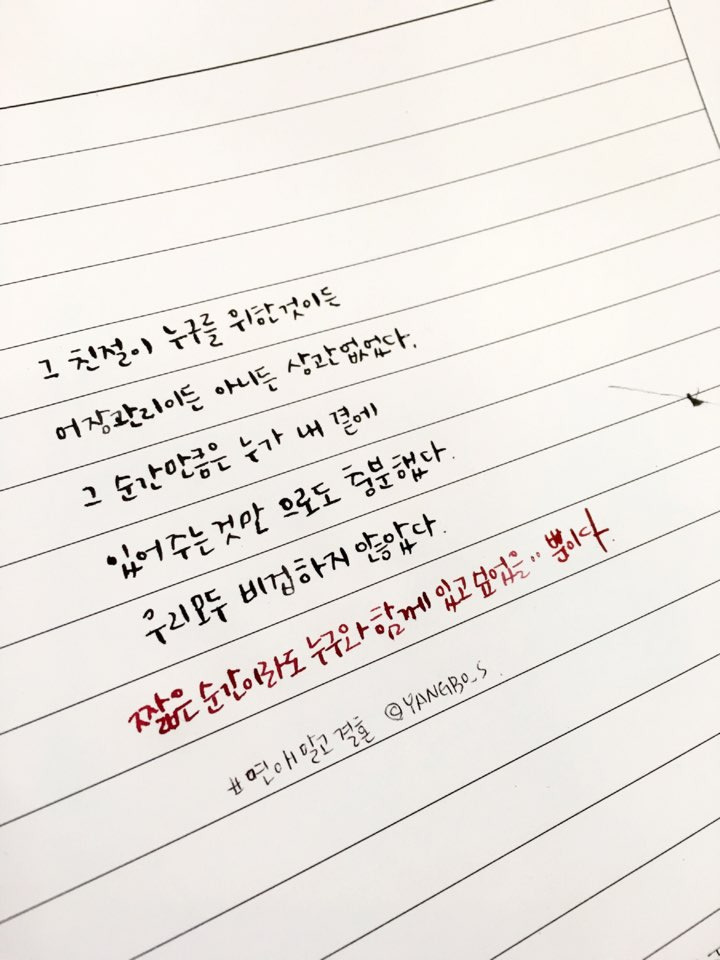 그 친절이 누구를 위한것이든
어장관리이든 아니든 상관없었다.
그 순간만큼은 누가 내 곁에
있어주는것만 으로도 충분했다.
우리모두 비겁하지 않았다.
짧은 순간이라도 누구와 함께 있고 싶었을.. 뿐이다.
#연애말고결혼 @YANGBO_S